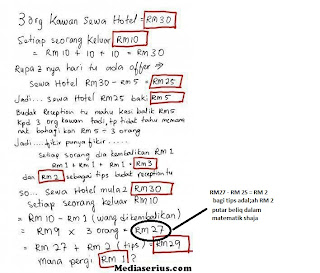 3 org Kawan Sewa Hotel = RM 30
Setiap seorang keluar RM 10
= RM 10 + 10 + 10 = RM 30
Rupa2 nya hari tu ada offer ⇒
Sewa Hotel RM 30 - RM 5 = RM 25
Jadi.... Sewa Hotel RM 25 baki RM 5
Budak Reception tu mahu kasi balik RM 5
kpd 3 org kawan tadi, tp tidak tahu
nak bahagi kan RM 5 ÷ 3 orang
Jadi ... fikir punya fikir ....
Setiap sorang dia kembalikan RM 1
RM 1 + RM 1 + RM 1 = RM 3
dan RM 2 sebagai tips budak reception tu
so... Sewa Hotel mula2 RM 30
Setiap seorang keluar RM 10
= RM 10 - RM 1 (wang dikembalikan)
= RM 9 x 3 orang = RM 27
= RM 27 + RM 2 (tips) = RM 29
mana pergi RM 1 ?
RM27 - RM 25 = RM 2
bagi tips adalah RM 2
putar belig dalam
matematik shaja
Mediaserius.com